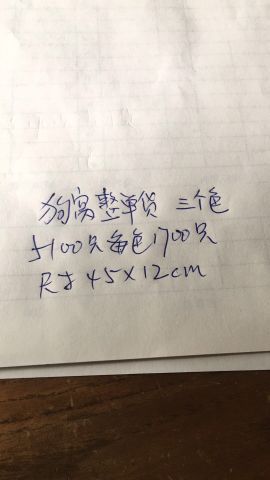 狗窝整单货 三个色
5100只每色1700只
尺寸45×12cm